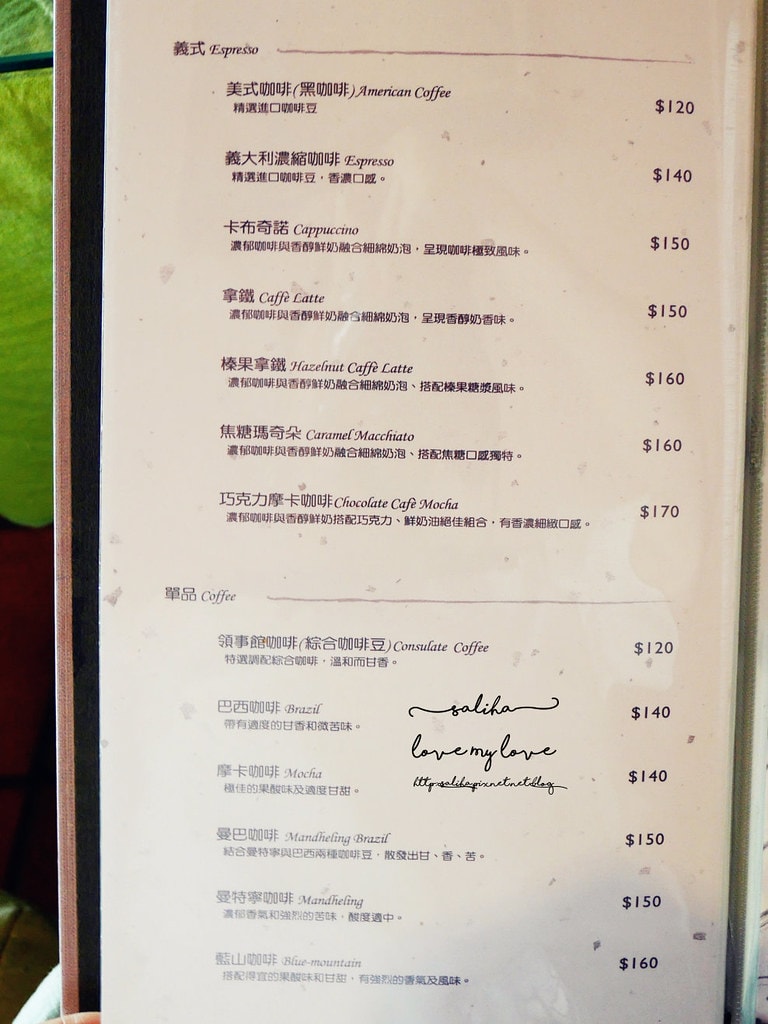 義式 Espresso
美式咖啡(黑咖啡)American Coffee $120
精選進口咖啡豆
義大利濃縮咖啡 Espresso $140
精選進口咖啡豆，香濃口感。
卡布奇諾 Cappuccino $150
濃郁咖啡與香醇鮮奶融合細綿奶泡，呈現咖啡極致風味。
拿鐵 Caffè Latte $150
濃郁咖啡與香醇鮮奶融合細綿奶泡，呈現香醇奶香味。
榛果拿鐵 Hazelnut Caffè Latte $160
濃郁咖啡與香醇鮮奶融合細綿奶泡、搭配榛果糖漿風味。
焦糖瑪奇朵 Caramel Macchiato $160
濃郁咖啡與香醇鮮奶融合細綿奶泡、搭配焦糖口感獨特。
巧克力摩卡咖啡Chocolate Cafè Mocha $170
濃郁咖啡與香醇鮮奶搭配巧克力、鮮奶油絕佳組合，有香濃細緻口感。
單品 Coffee
領事館咖啡(綜合咖啡豆)Consulate Coffee $120
特選調配綜合咖啡，溫和而甘香。
巴西咖啡 Brazil $140
帶有適度的甘香和微苦味。
saliha
love my love
摩卡咖啡 Mocha $140
極佳的果酸味及適度甘甜。
http:saliha.pixnet.net.blog
曼巴咖啡 Mandheling Brazil $150
結合曼特寧與巴西兩種咖啡豆，散發出甘、香、苦。
曼特寧咖啡 Mandheling $150
濃郁香氣和強烈的苦味，酸度適中。
藍山咖啡 Blue-mountain $160
搭配得宜的果酸味和甘甜，有強烈的香氣及風味。